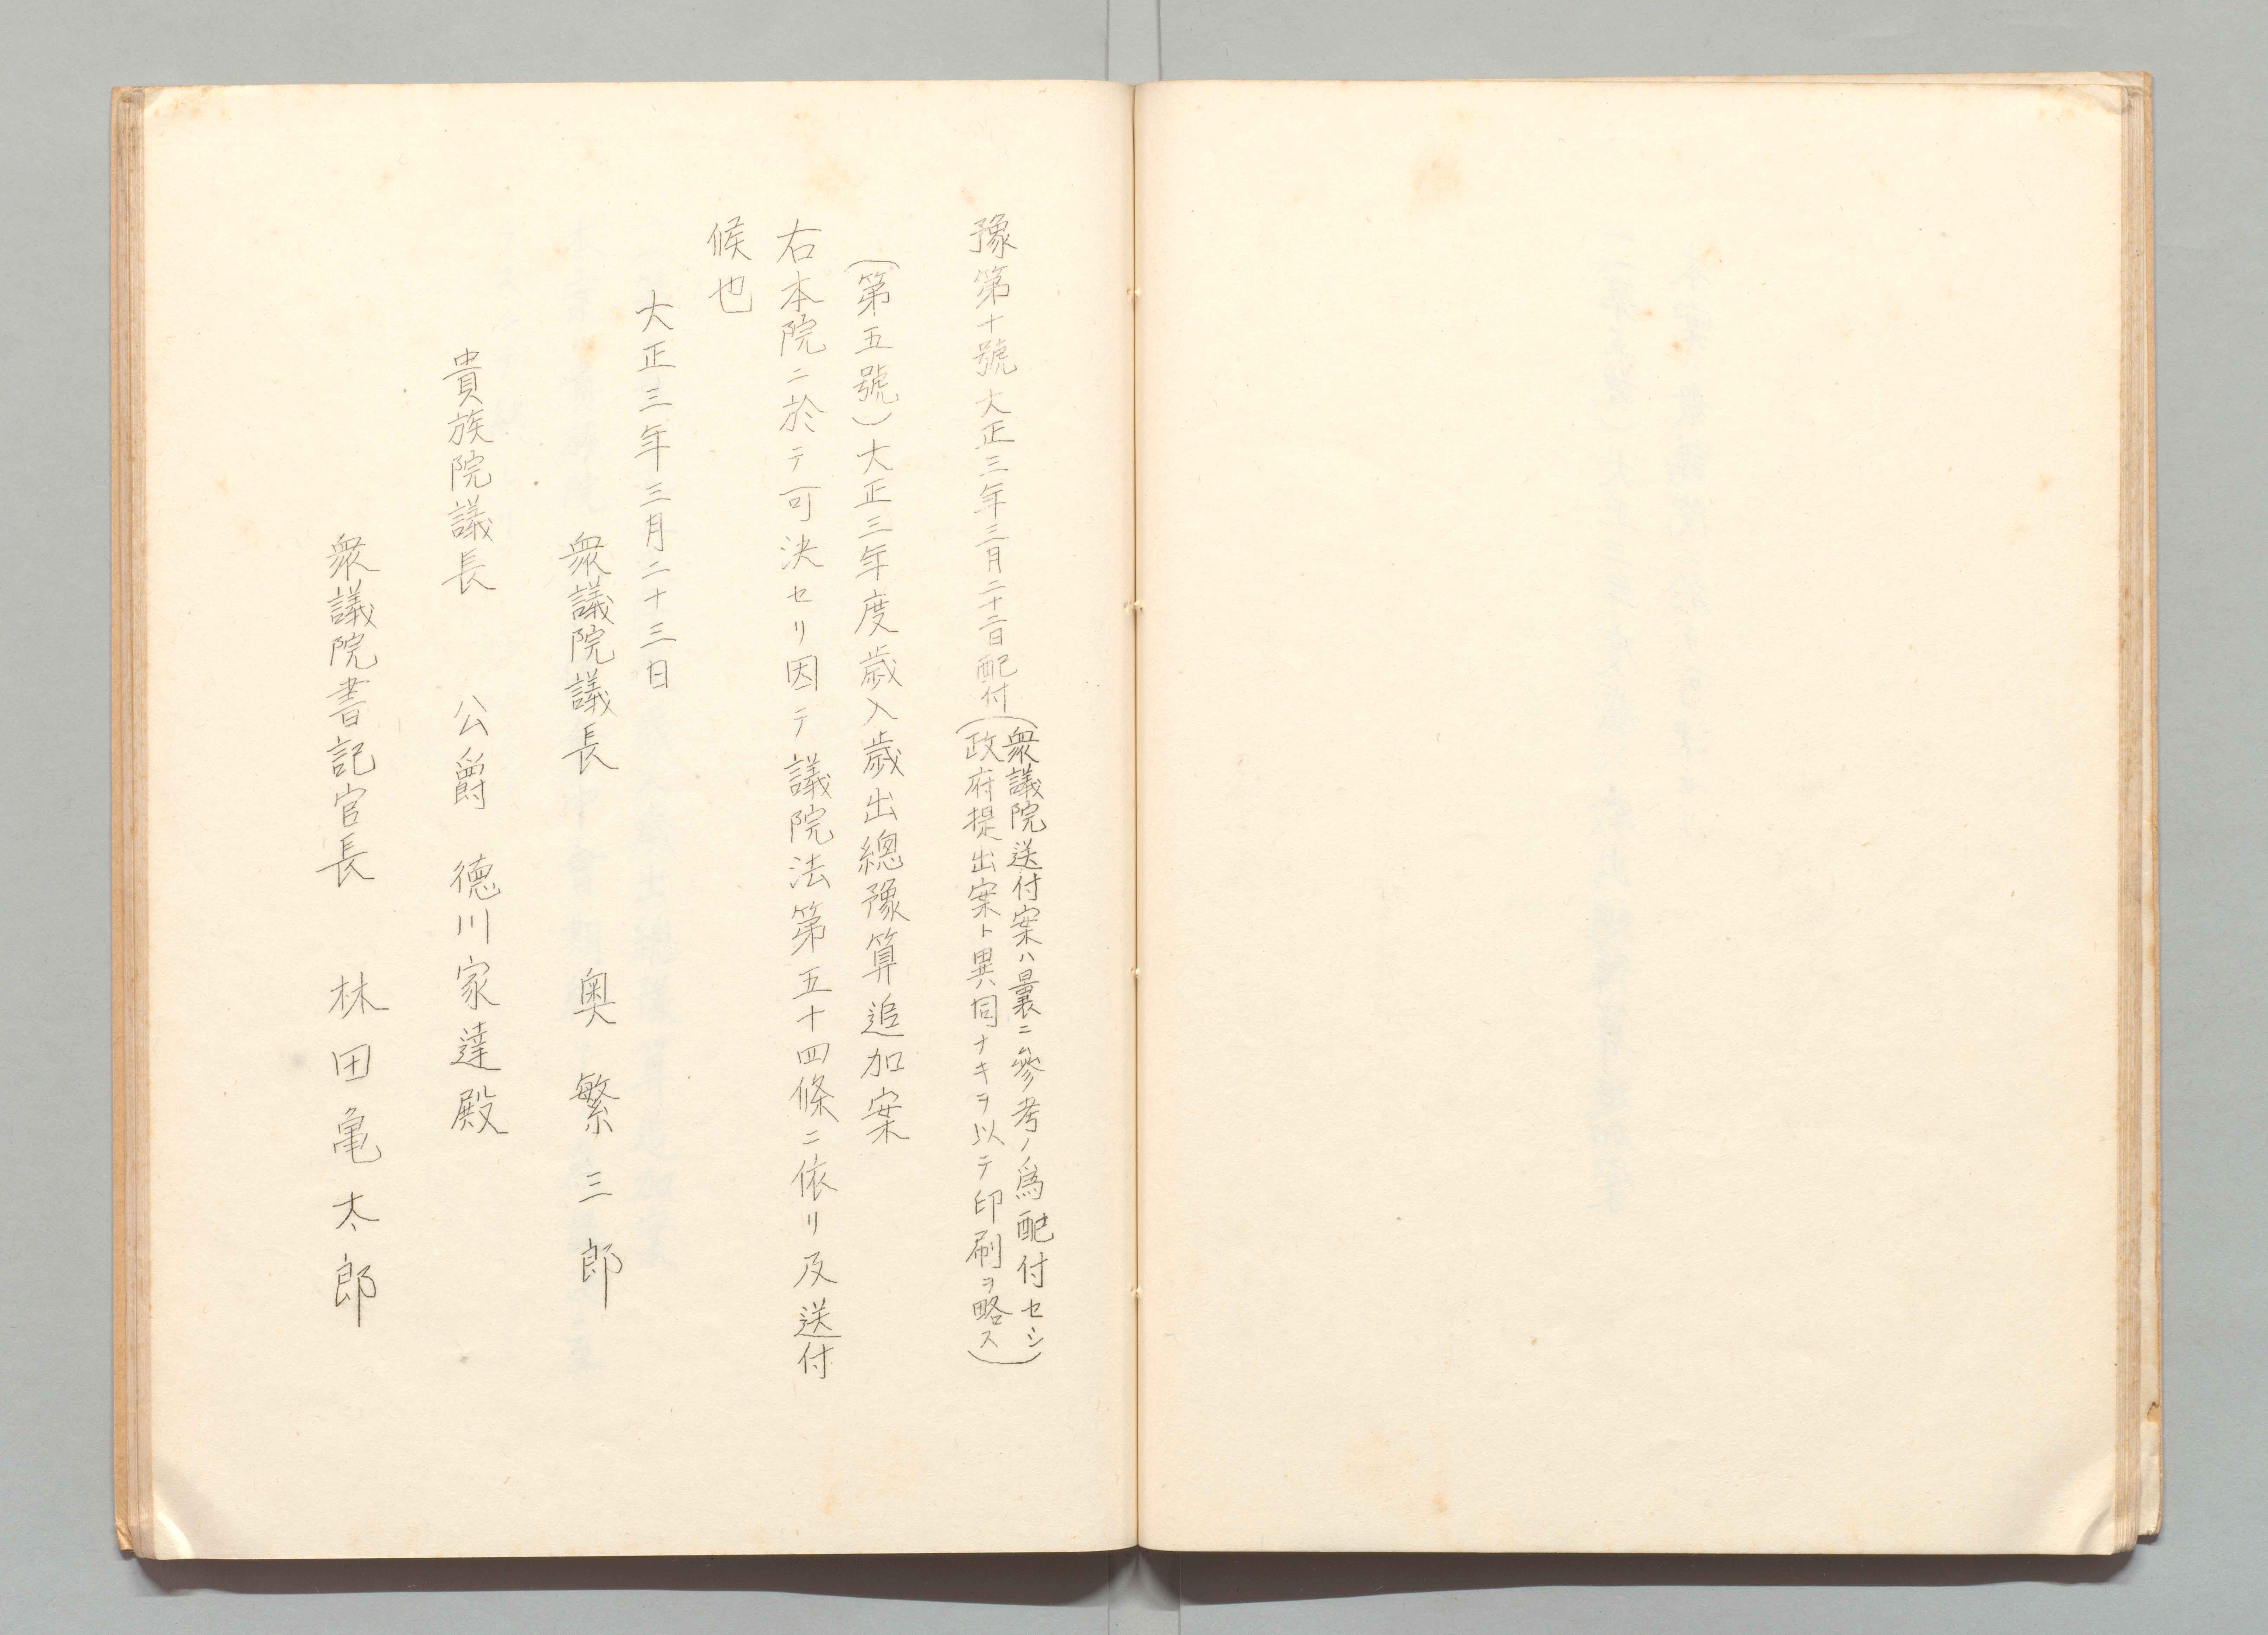 豫第十號大正三年三月二十三日配付(衆議院送付案ハ曩ニ參考ノ爲配付セシ
政府提出案ト異同ナキヲ以テ印刷ヲ略ス)
(第五號)大正三年度歲入歲出總豫算追加案
右本院ニ於テ可決セリ因テ議院法第五十四條ニ依リ及送付
候也
大正三年三月二十三日
衆議院議長 奥繁三郎
貴族院議長 公爵 德川家達殿
衆議院書記官長 林田亀太郎